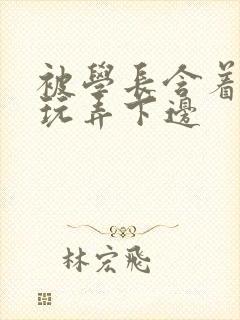 被學長含着
玩弄下邊
林宏飛